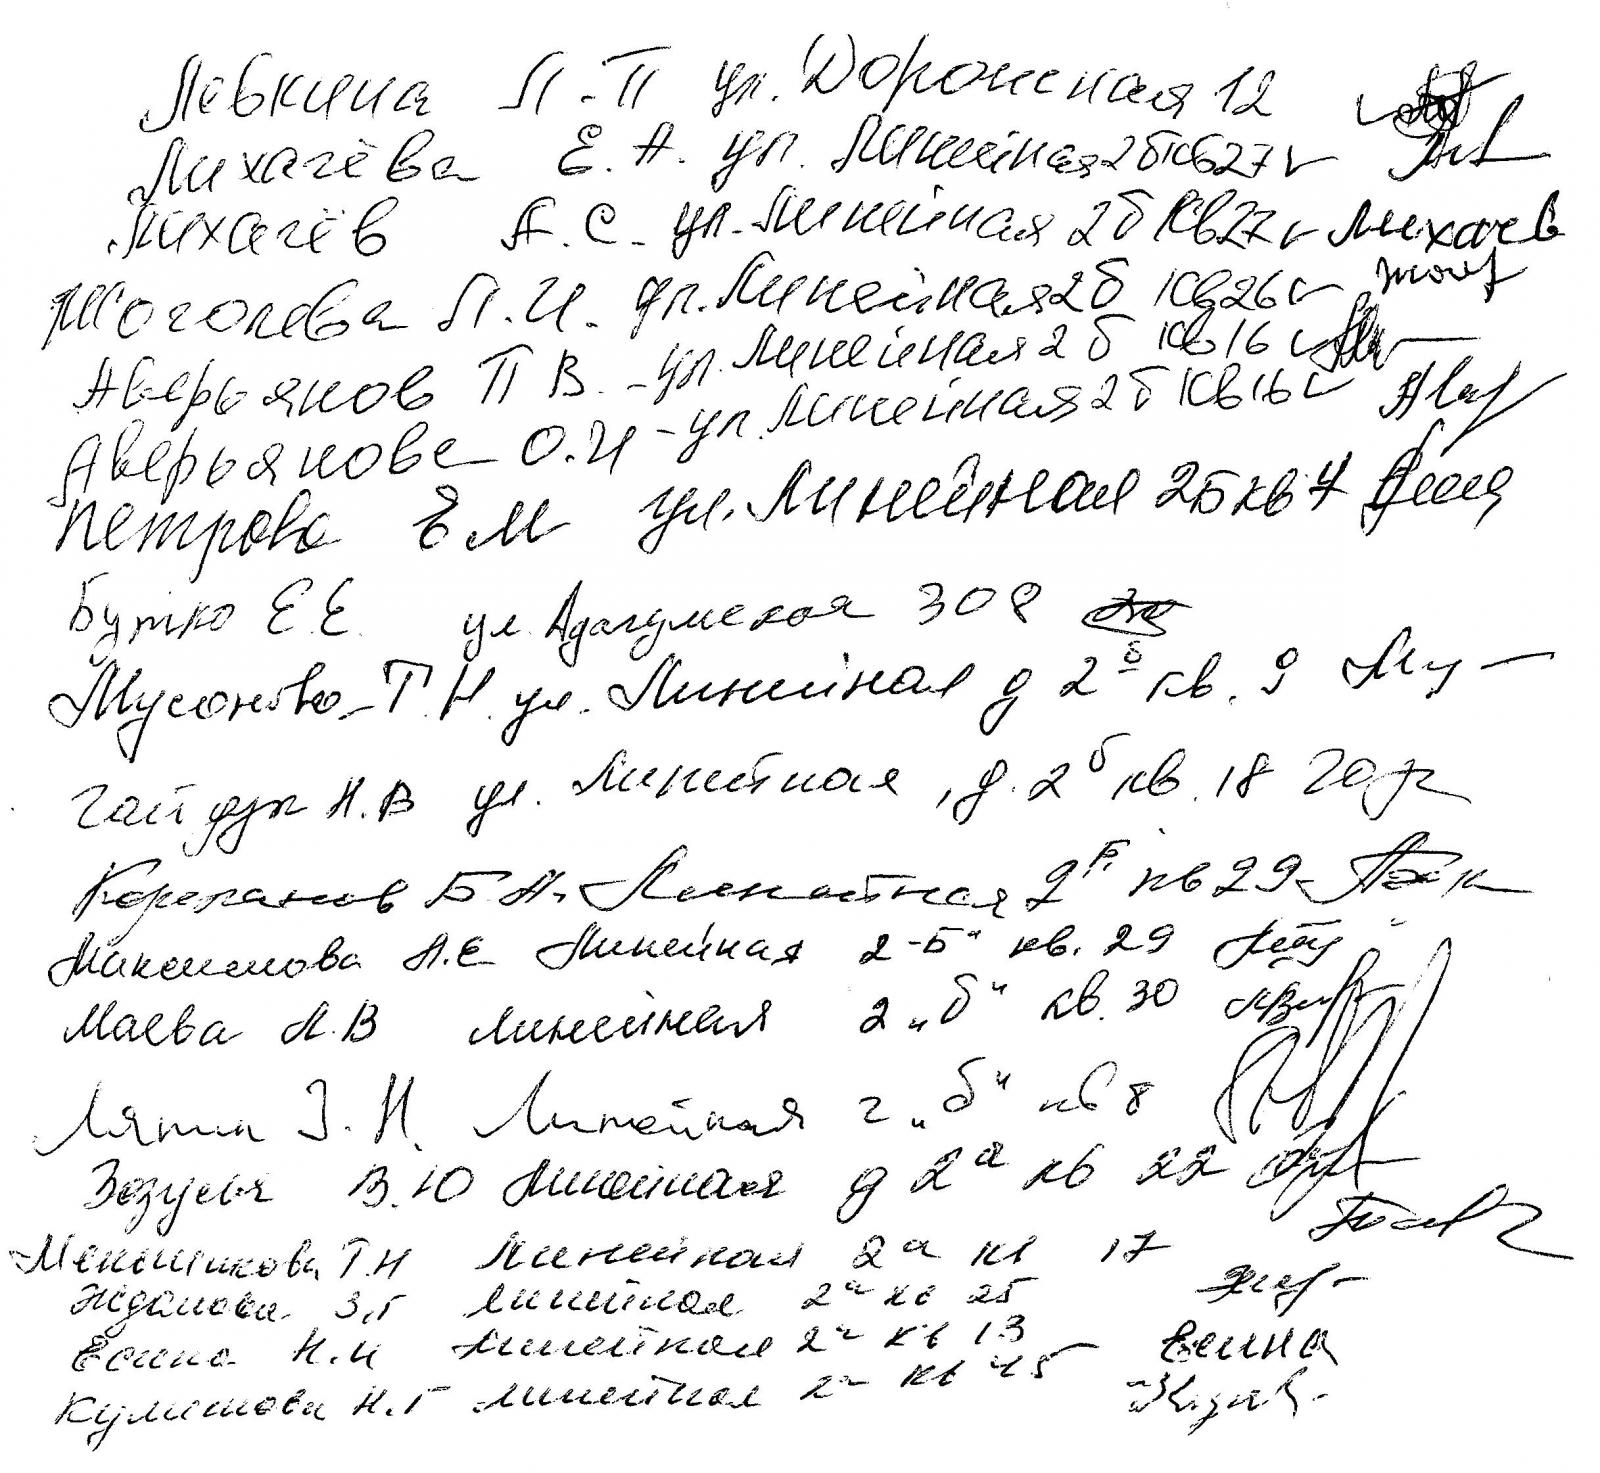 Лёвкина Л.П ул. Дорожная 12
Лихачёва Е.А. ул. Линейная 2б кв27
Лихачёв А.С. ул. Линейная 2б кв27 Лихачев
Л.И. ул. Линейная 2б кв26
Аверьянов П В. - ул. Линейная 2б кв16
Аверьянова О.И - ул. Линейная 2б кв16
Петрова Е М ул. Линейная 2Б кв 7
Бутко Е.Е. ул. Адагумская 308
Т.Н. ул. Линейная д 2б кв. 9 Му
Гайдук Н.В ул. Линейная, д. 2б кв. 18
Корепанов Б.Н. Линейная 2Б кв 29
Максимова А.Е Линейная 2 -Б" кв. 29
Маева Л.В линейная 2 „б" кв. 30
Линейная 2 „б" кв 8
В.Ю линейная д 2а кв 22
Меньшикова Т.Н Линейная 2а кв 17
Жданова З.Г линейная 2а кв 25
Есина Н.И линейная 2а кв 13 Есина
Н.Г линейная 2а кв 45